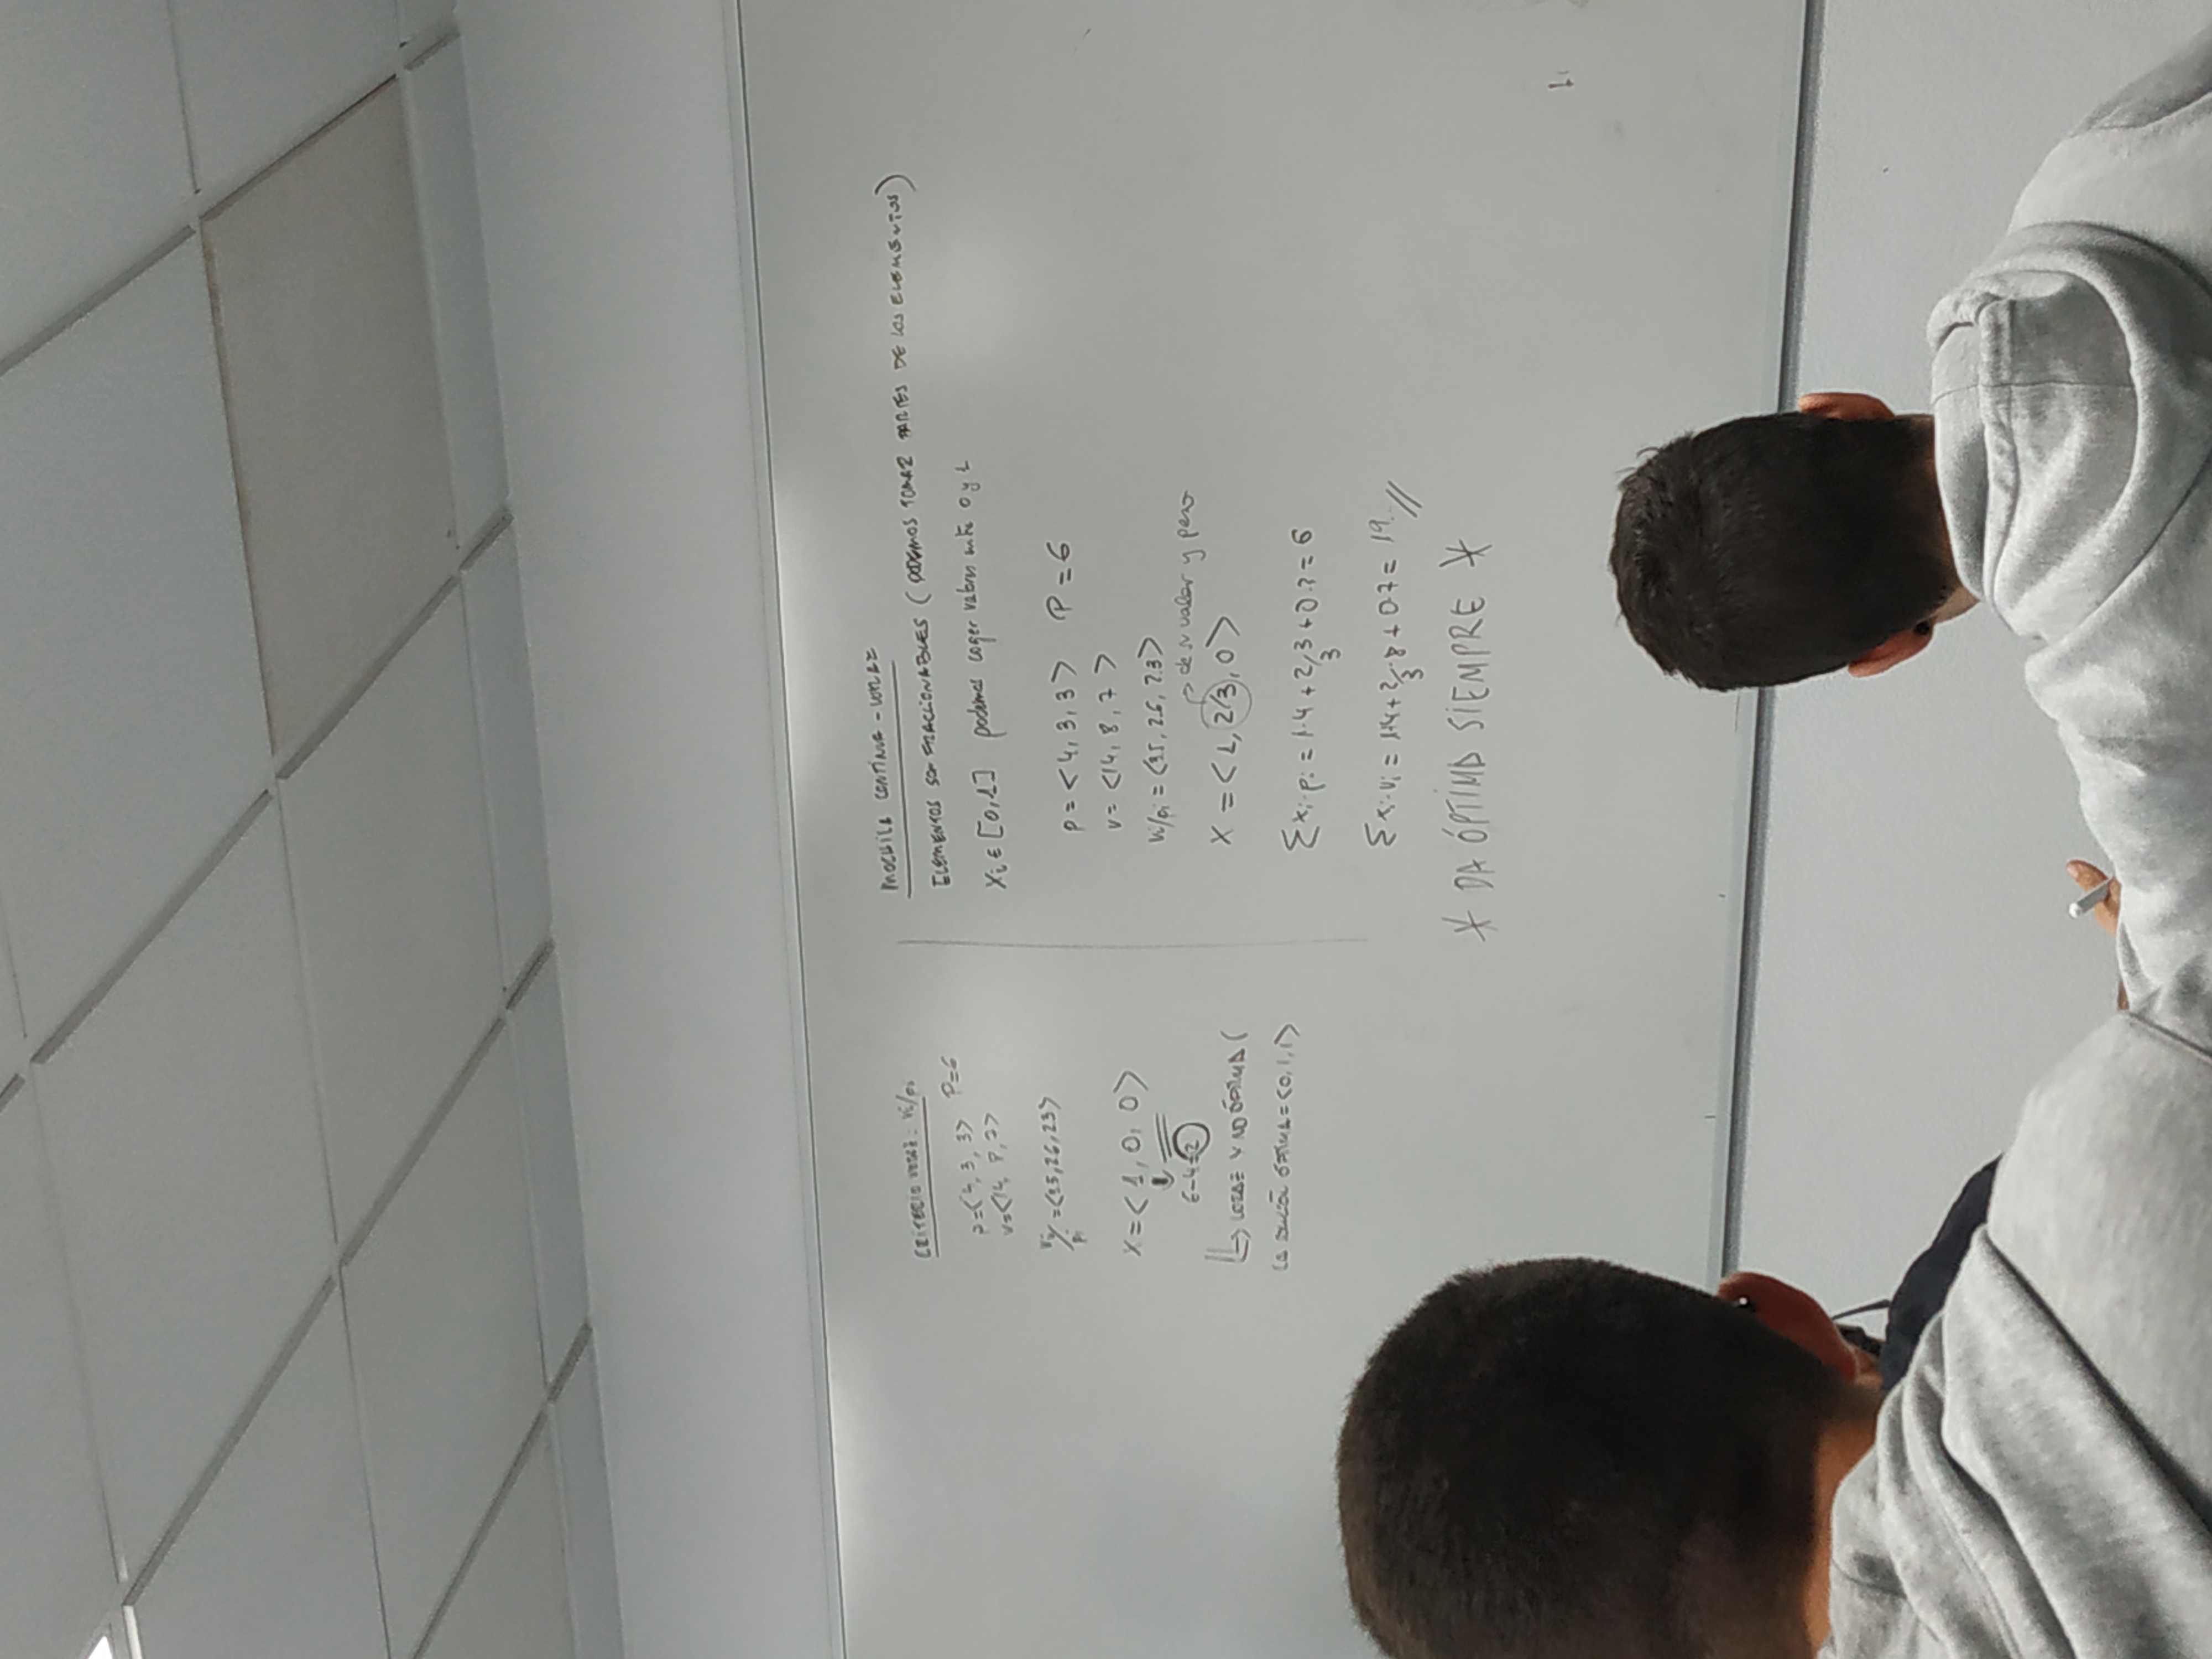 CRITERIO VORAZ: vi/pi
p=<4, 3, 3> P=6
v=<14, 8, 7>
vi/pi =<3.5, 2.6, 2.3>
X=<1, 0, 0>
6-4=2
VORAZ Y NO ÓPTIMA (
LA SOLUCIÓN ÓPTIMA=<0,1,1>
MOCHILA CONTINUA - VORAZ
ELEMENTOS SON FRACCIONABLES (PODEMOS TOMAR PARTES DE LOS ELEMENTOS)
Xi ∈ [0,1] podemos coger valores entre 0 y 1
p = <4, 3, 3> P = 6
v= <14, 8, 7>
vi/pi = <3.5, 2.6, 2.3>
de su valor y peso
X = <1, 2/3, 0>
∑xi·pi = 1·4 + 2/3·3 + 0·3 = 6
∑xi·vi = 14 + 2/3·8 + 0·7 = 19..//
* DA ÓPTIMA SIEMPRE *